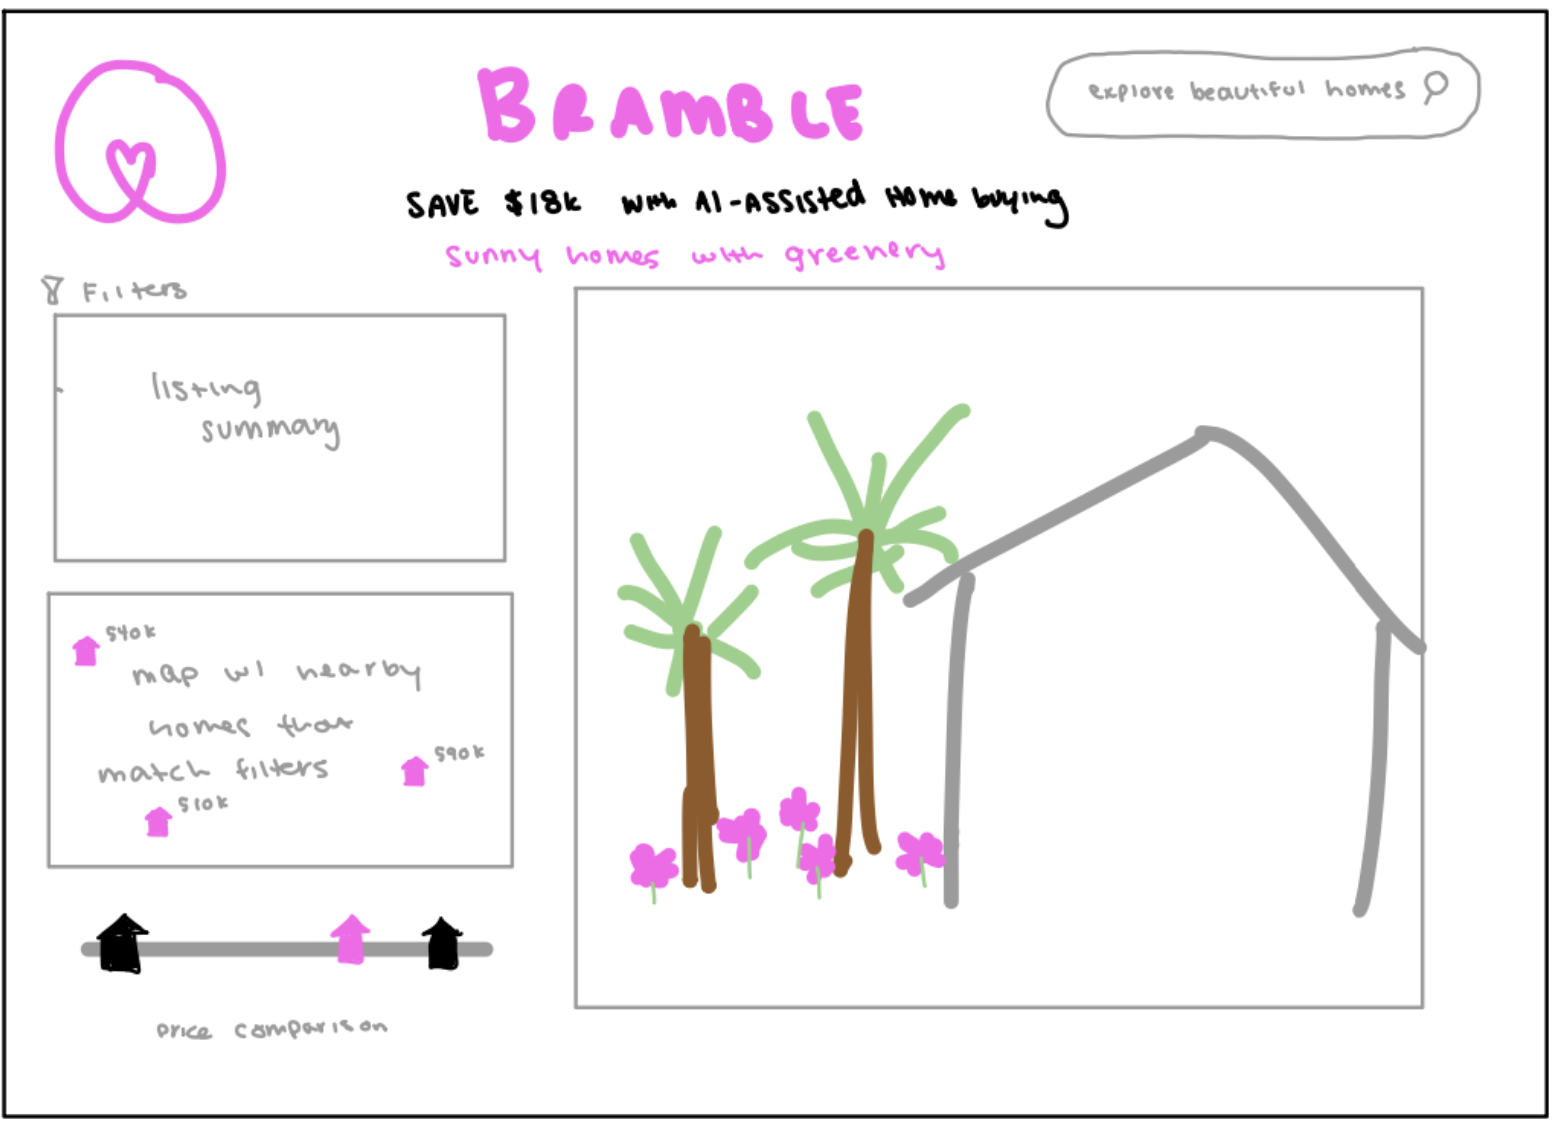 BRAMBLE
explore beautiful homes
SAVE $18k with AI-ASSISTED Home buying
sunny homes with greenery
Filters
listing
summary
540k
map w/ nearby
homes that
match filters
590k
510k
price comparison